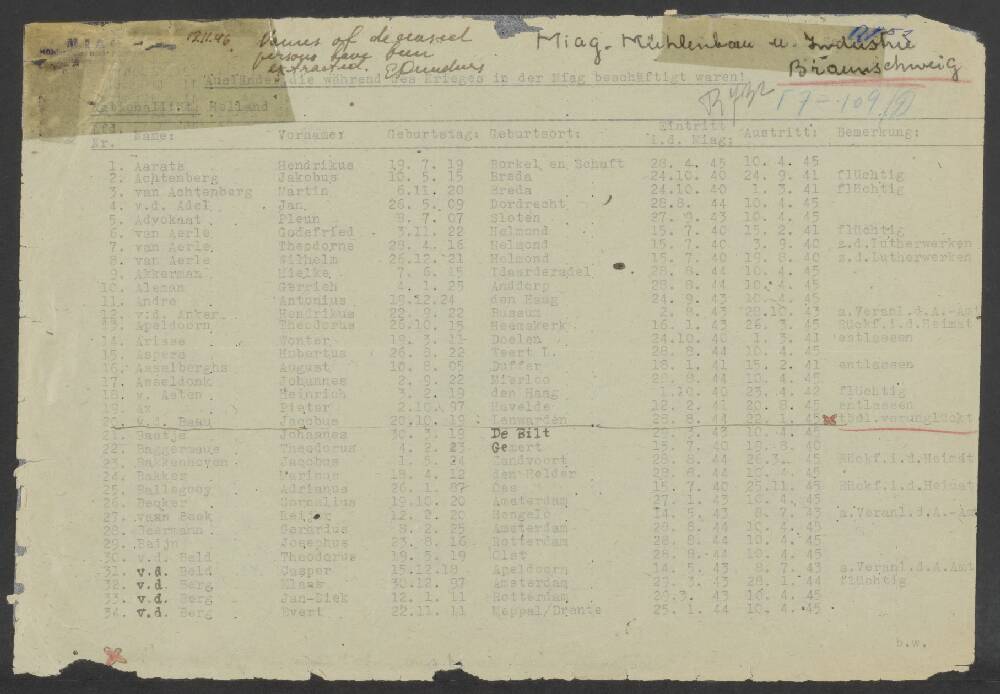 12.11.46 Names of deceased
persons have been
extracted.
Miag-Mühlenbau u. Industrie
Braunschweig
Ausländer die während des Krieges in der Miag beschäftigt waren!
Nationalität: Holland
F7-109
Lfd. Nr. Name: Vorname: Geburtstag: Geburtsort: Eintritt i.d. Miag: Austritt: Bemerkung:
1. Aarats Hendrikus 19. 7. 19 Borkel en Schaft 28. 4. 45 10. 4. 45
2. Achtenberg Jakobus 10. 5. 15 Breda 24.10. 40 24. 9. 41 flüchtig
3. van Achtenberg Martin 6.11. 20 Breda 24.10. 40 1. 3. 41 flüchtig
4. v.d. Adel Jan 26. 5. 09 Dordrecht 28.8. 44 10. 4. 45
5. Advokaat Pleun 8. 7. 07 Sloten 27. 9. 43 10. 4. 45
6. van Aerle Godefried 3.11. 22 Helmond 15. 7. 40 15. 2. 41 flüchtig
7. van Aerle Theodorne 28. 4. 16 Helmond 15. 7. 40 3. 9. 40 z.d.Lutherwerken
8. van Aerle Wilhelm 26.12. 21 Helmond 15. 7. 40 19. 8. 40 z.d.Lutherwerken
9. Akkerman Mielke 7. 6. 15 28. 8. 44 10. 4. 45
10. Aleman Gerrich 4. 1. 25 Anddorp 28. 8. 44 10. 4. 45
11. Andre Antonius 19.12.24 den Haag 24. 9. 43 10. 4. 45
12. v.d. Anker Hendrikus 22. 9. 22 Bussum 2. 8. 43 28.10. 43 a.Veranl.d.A.-Amt
13. Apeldoorn Theodorus 26.10. 15 Heemskerk 16. 1. 43 26. 3. 45 Rückf.i.d.Heimat
14. Arisse Wonter 19. 3. 11 Doelen 24.10. 40 1. 3. 41 entlassen
15. Aspers Hubertus 26. 8. 22 Weert L. 28. 8. 44 10. 4. 45
16. Asselberghs August 10. 8. 05 Duffer 18. 1. 41 15. 2. 41 entlassen
17. Asseldonk Johannes 2. 9. 22 Mierloo 28. 8. 44 10. 4. 45
18. v. Asten Heinrich 3. 2. 19 den Haag 1.10. 40 23. 4. 42 flüchtig
19. Ax Pieter 2.10. 97 Havelde 12. 2. 41 20. 8. 45 entlassen
20. v.d. Baau Jacobus 20.10. 19 Leuwarden 28. 8. 44 22. 1. 45 tödl.verunglückt
21. Baatje Johannes 30. 3. 19 De Bilt 10. 4. 45
22. Baggermans Theodorus 4. 2. 23 Gemert 15. 7. 40 19. 8. 40
23. Bakkenhoven Jacobus 1. 5. 24 Zandvoort 28. 8. 44 26.3. 45 Rückf.i.d.Heimat
24. Bakker Marinus 18. 4. 12 den Helder 28. 8. 44 10. 4. 45
25. Ballegooy Adrianus 26. 1. 87 Oss 15. 7. 40 25.11. 43 Rückf.i.d.Heimat
26. Becker Cornelius 19.10. 20 Amsterdam 27. 1. 43 10. 4. 45
27. vaan Beek 12. 2. 20 Hengelo 14. 5. 43 8. 7. 43 a.Veranl.d.A.-Amt
28. Beermann Gerardus 8. 2. 25 Amsterdam 28. 8. 44 10. 4. 45
29. Beijn Josephus 23. 8. 16 Rotterdam 28. 8. 44 10. 4. 45
30. v.d. Beld Theodorus 19. 5. 19 Olst 28. 8. 44 10. 4. 45
31. v.d. Beld Casper 15.12.18 Apeldoorn 14. 5. 43 8. 7. 43 a.Veranl.d.A.Amt
32. v.d. Berg Klaas 30.12. 97 Amsterdam 29. 3. 43 28. 1. 44 flüchtig
33. v.d. Berg Jan-Diek 12. 1. 11 Rotterdam 29.3. 43 10. 4. 45
34. v.d. Berg Evert 22.11. 11 Meppal/Drente 25. 1. 44 10. 4. 45
b.w.